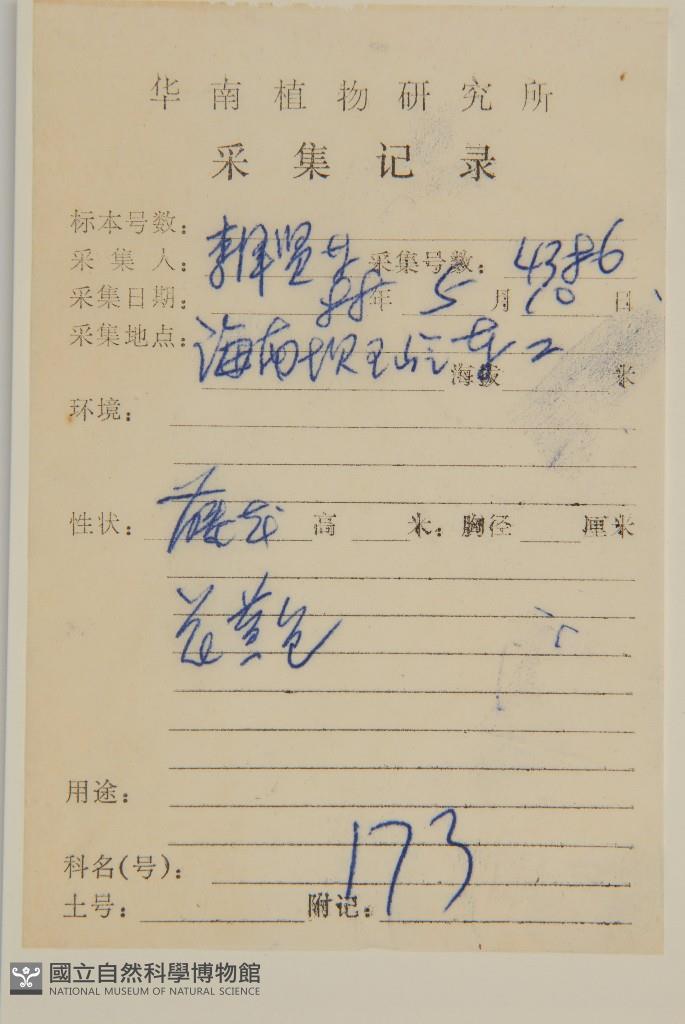 华南植物研究所
采集记录
标本号数：
采集人： 采集号数：
采集日期： 年 5 月 10 日
采集地点：海南坝王岭东二
海拔 米
环境：
性状：藤状 高 米：胸径 厘米
花黄色
用途：
科名(号)：173
土号： 附记：
國立自然科學博物館
NATIONAL MUSEUM OF NATURAL SCIENCE